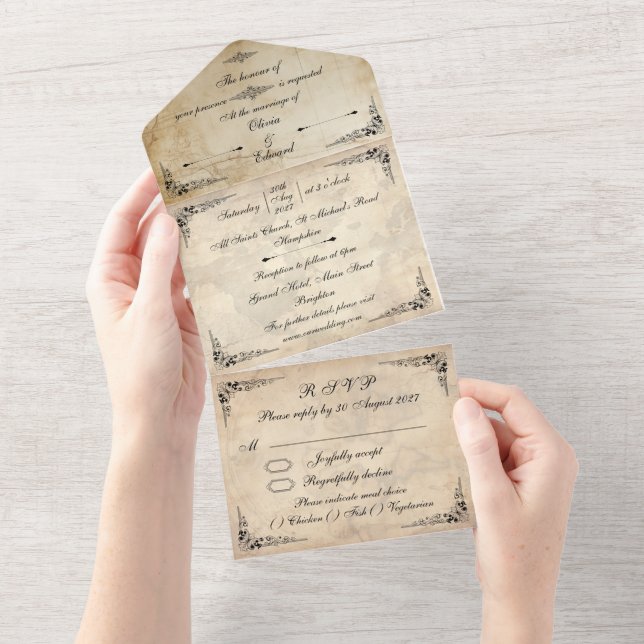 The honour of
your presence is requested
At the marriage of
Olivia
&
Edward
Saturday 30th Aug 2027 at 3 o'clock
All Saints Church, St Michael's Road
Hampshire
Reception to follow at 6pm
Grand Hotel, Main Street
Brighton
For further details please visit
www.ourwedding.com
R S V P
Please reply by 30 August 2027
M
Joyfully accept
Regretfully decline
Please indicate meal choice
( ) Chicken ( ) Fish ( ) Vegetarian